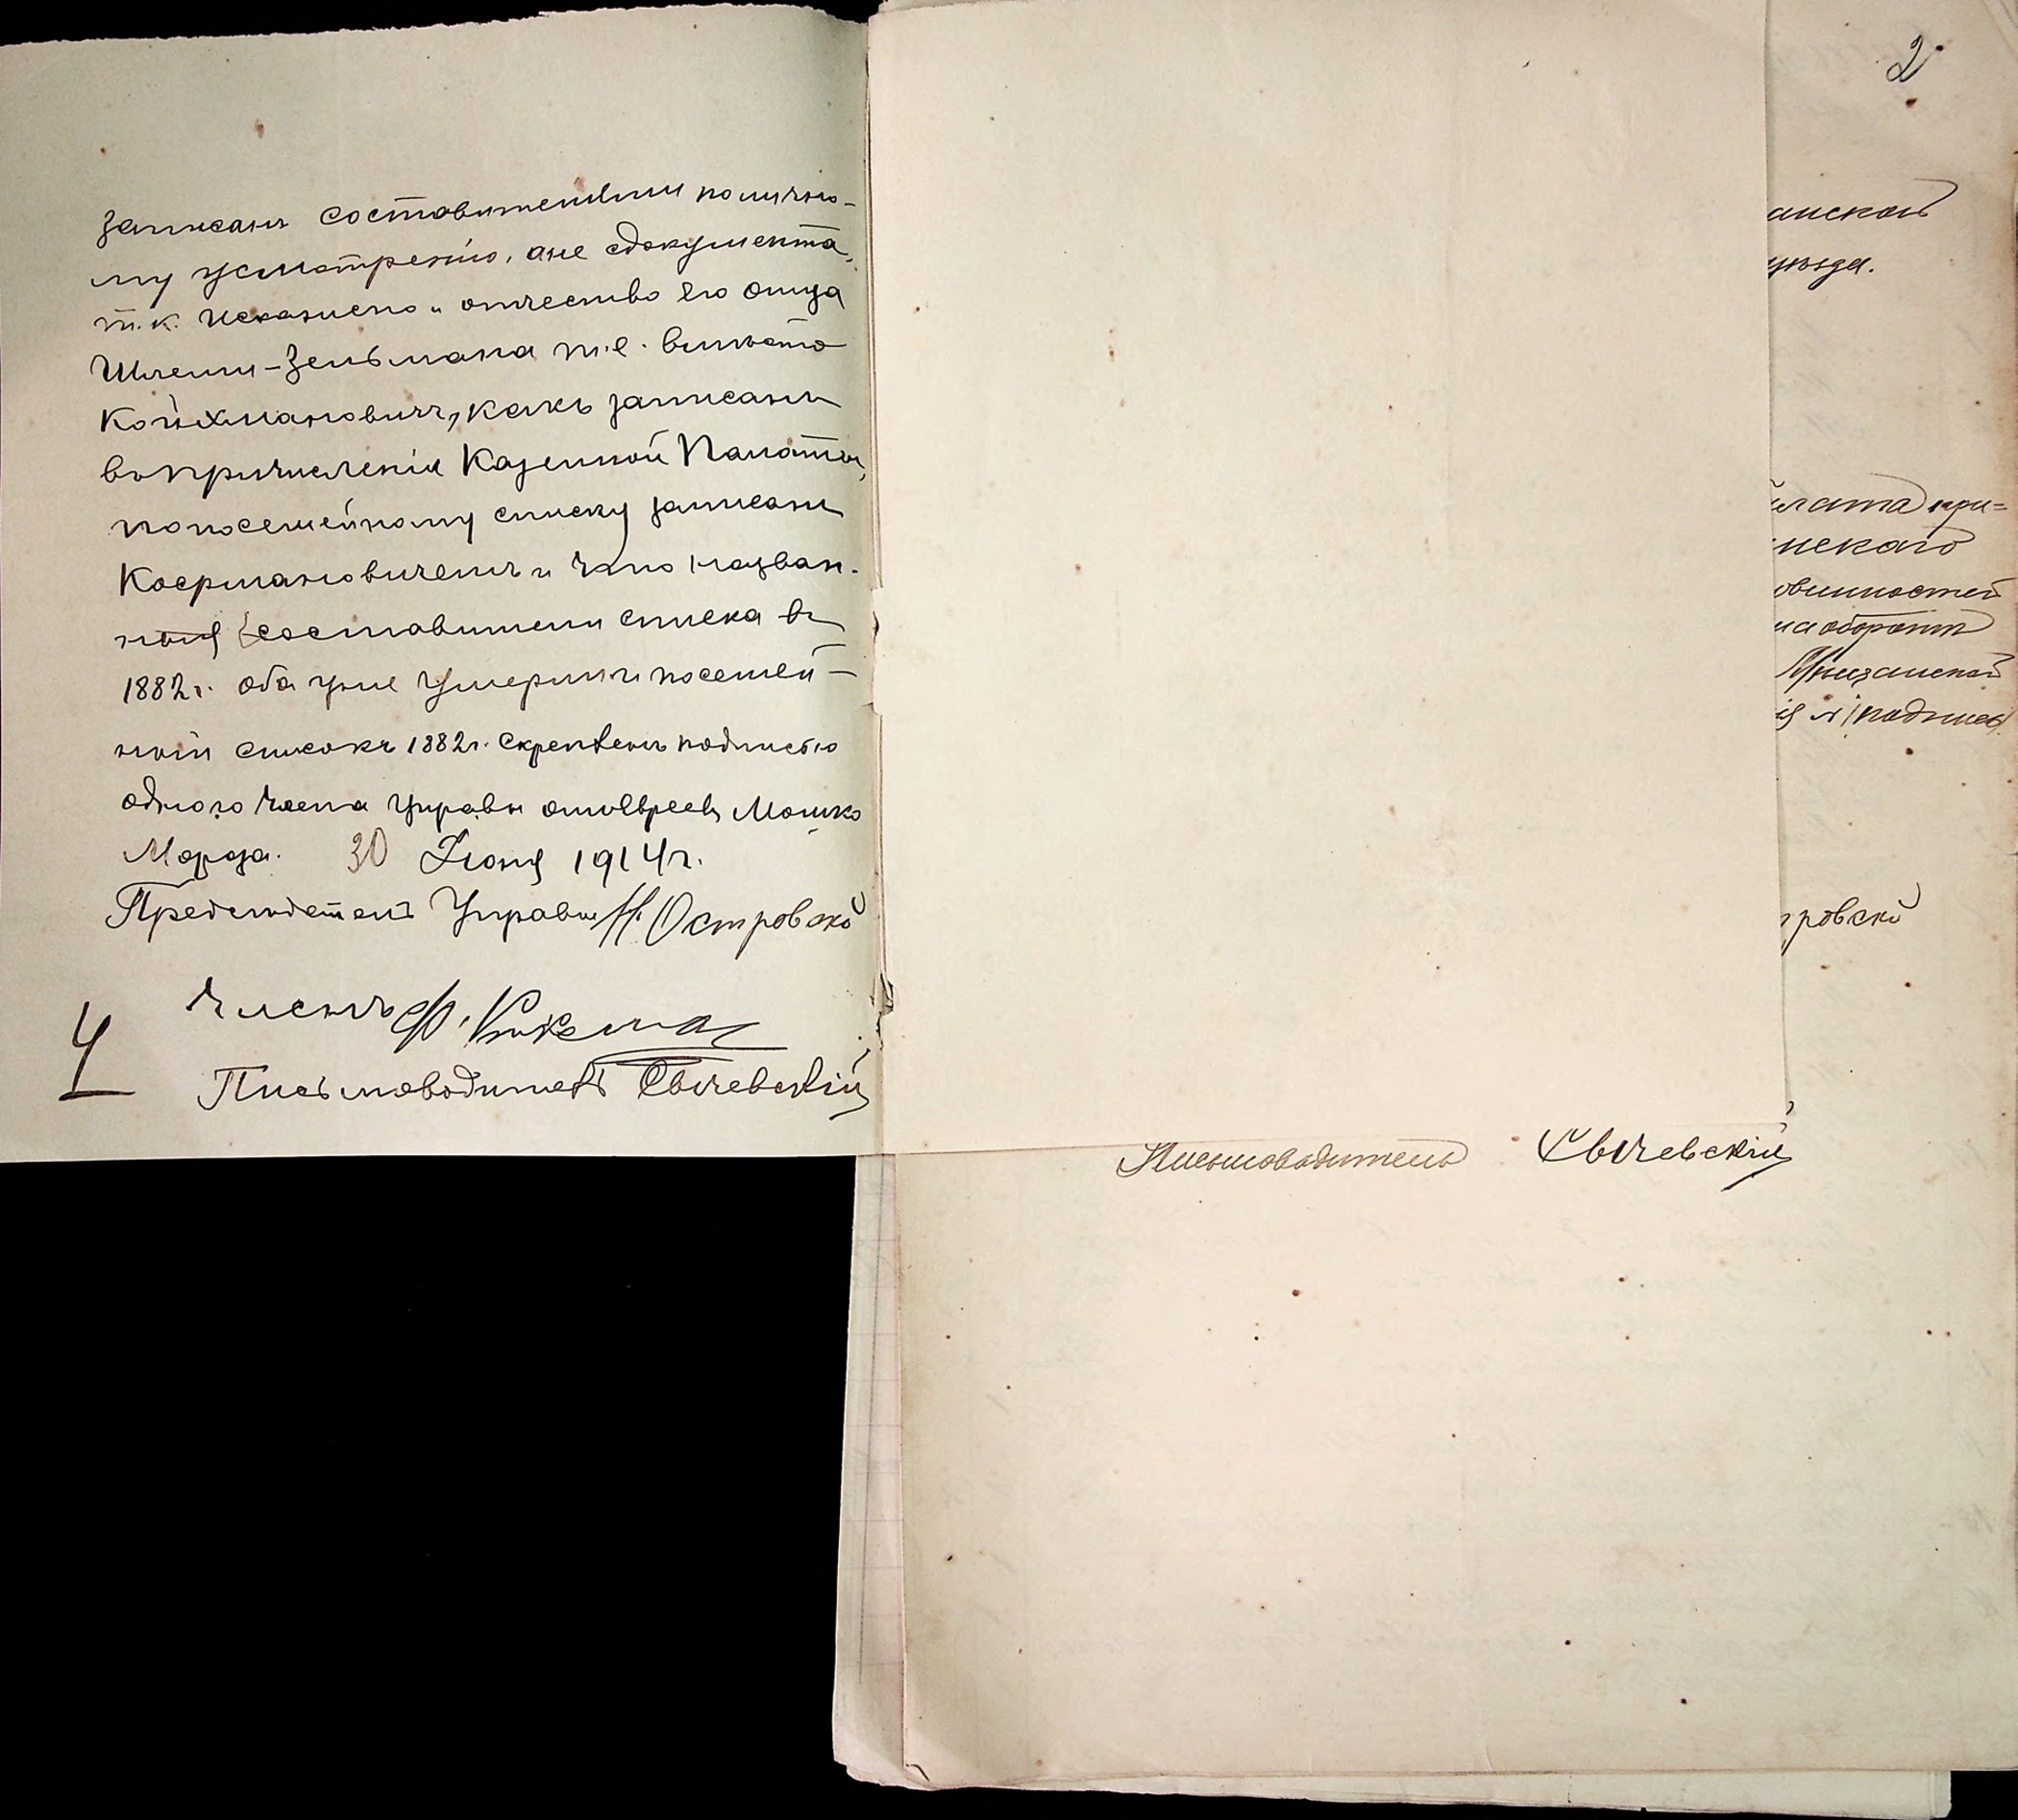 записанъ составителями полично-
му усмотренію, ане сдокумента,
т.к. искажено и отчество его отца
Шлемы-Зельмана т.е. вместо
Койхмановичъ, какъ записанъ
въ причисленіи Казенной Палаты,
попосемейному списку записанъ
Косрмановичемъ и что назван-
ныя составители списка въ
1882 г. оба уже умерши и посемей-
ный списокъ 1882 г. скрепленъ подписью
одного члена Управы отъ евреевъ Мошко
Мороза. 30 Іюня 1914 г.
Председатель Управы Н. Островскій
Членъ Ф.
4
Письмоводитель Свичевскій
2
анской
уѣзда.
лата при=
нскаго
овинностей
на оборотъ
подписью
ровскій
Письмоводитель Свичевскій